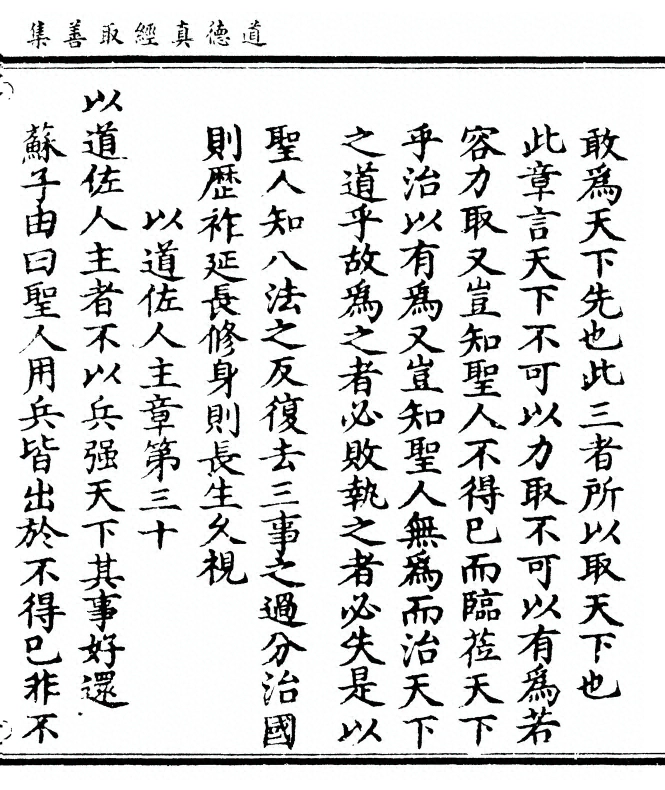 道德真經取善集
敢爲天下先也此三者所以取天下也
此章言天下不可以力取不可以有爲若
容力取又豈知聖人不得已而臨莅天下
乎治以有爲又豈知聖人無爲而治天下
之道乎故爲之者必敗執之者必失是以
聖人知八法之反復去三事之過分治國
則歷祚延長修身則長生久視
以道佐人主章第三十
以道佐人主者不以兵强天下其事好還
蘇子由曰聖人用兵皆出於不得已非不